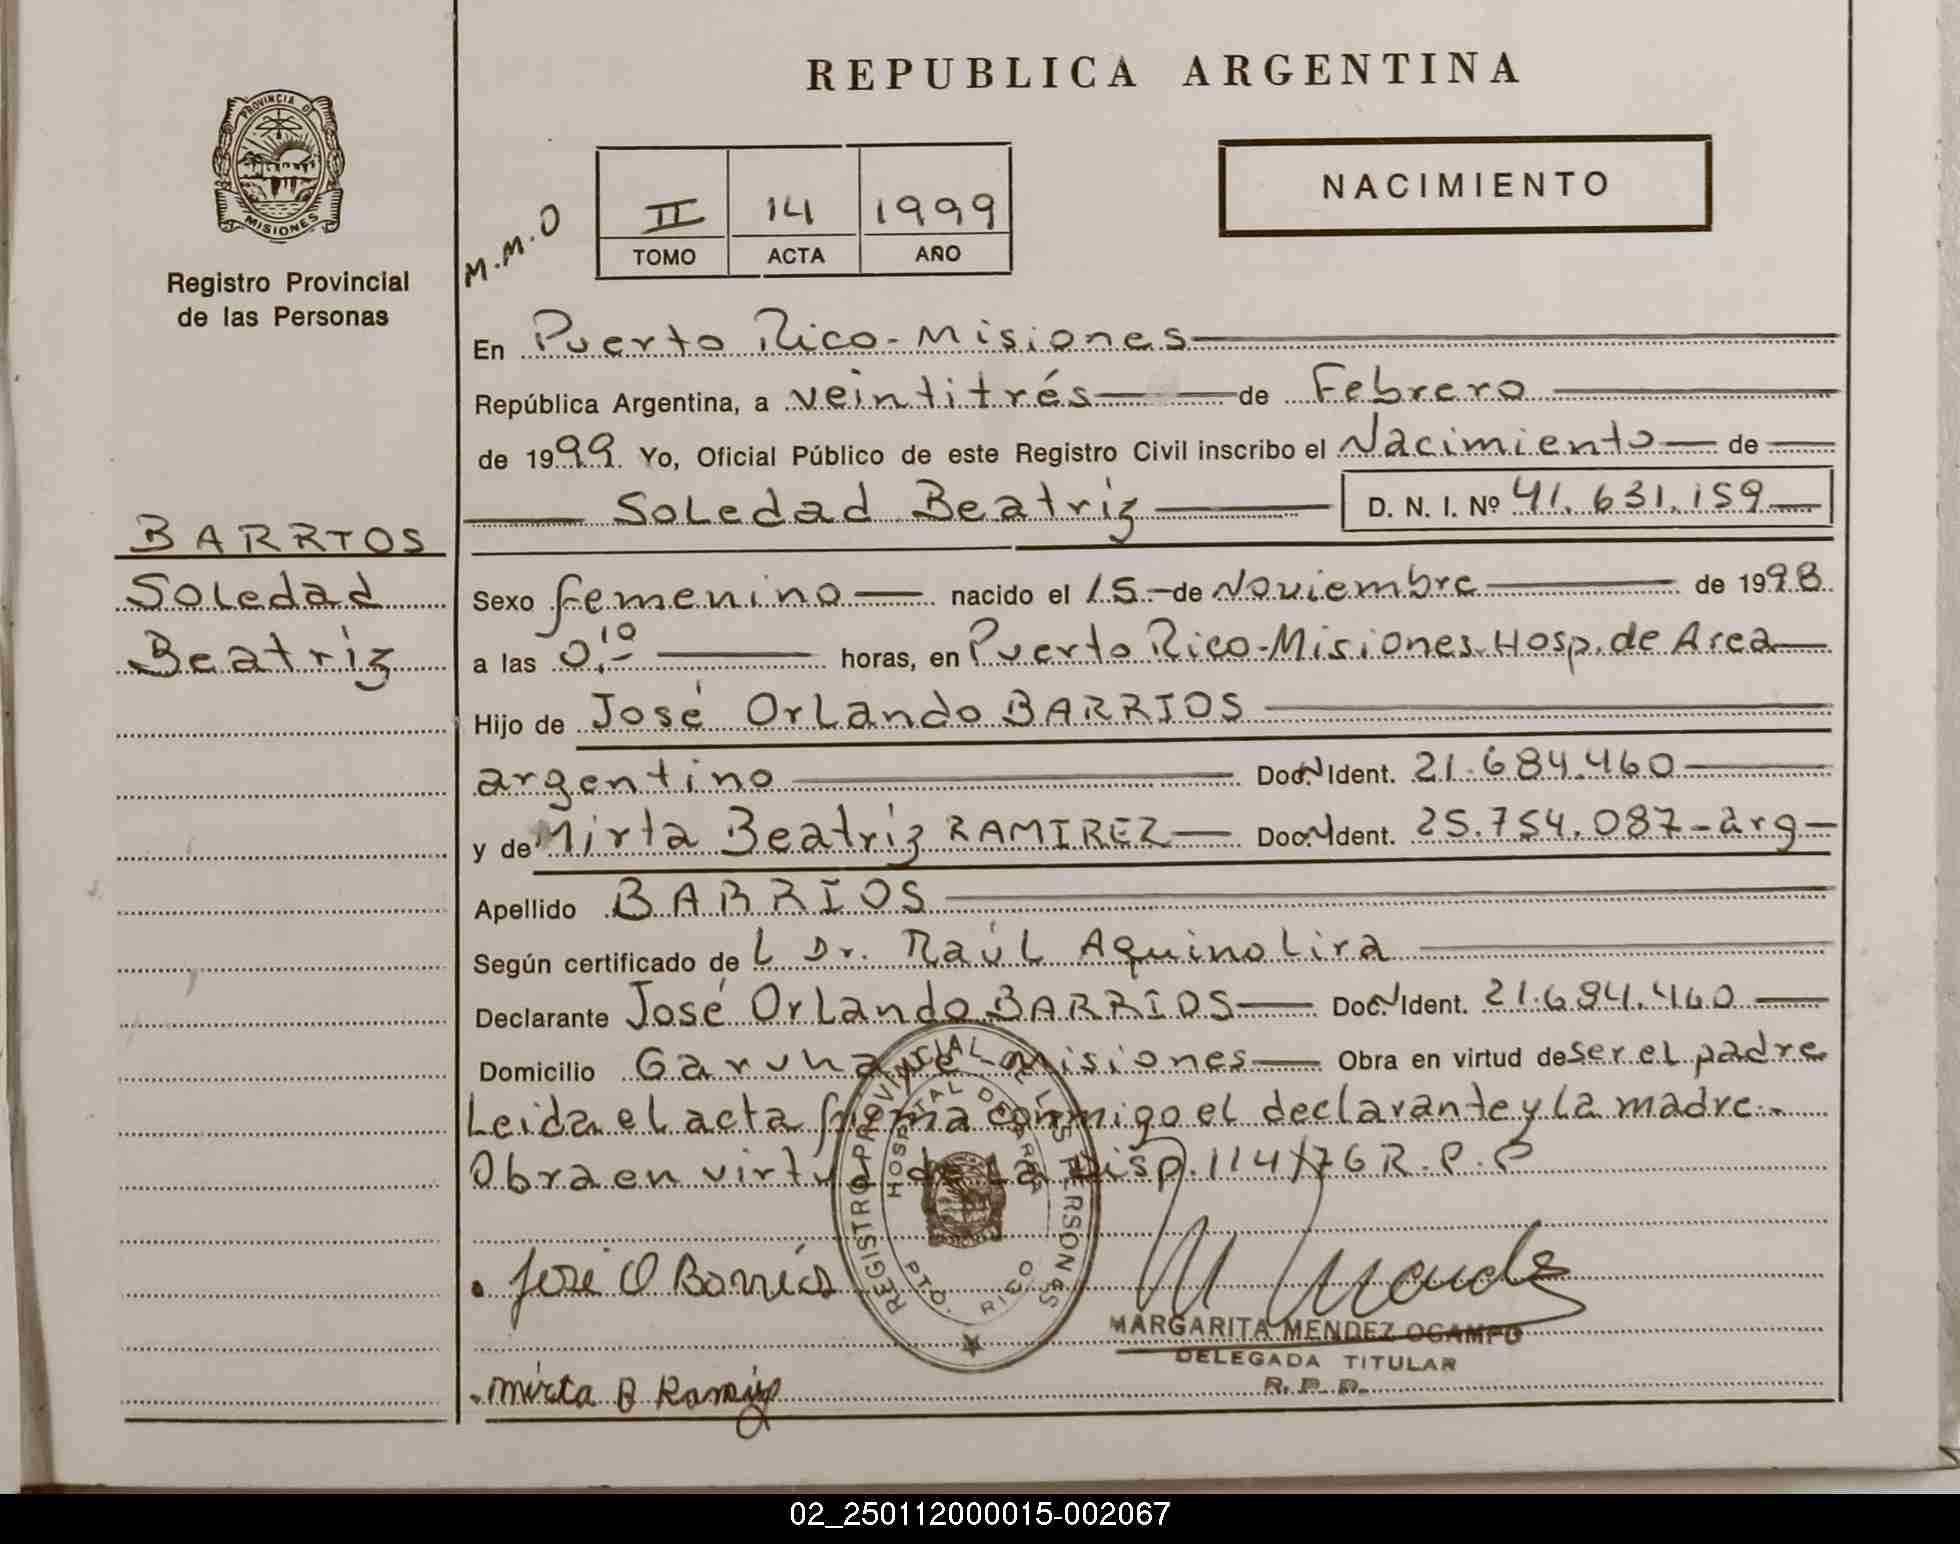 REPUBLICA ARGENTINA
PROVINCIA DE
MISIONES
Registro Provincial
de las Personas
M.M.O
II 14 1999
TOMO ACTA AÑO
NACIMIENTO
En Puerto Rico - Misiones
República Argentina, a veintitrés de Febrero
de 1999. Yo, Oficial Público de este Registro Civil inscribo el Nacimiento de
Soledad Beatriz D. N. I. Nº 41.631.159
BARRIOS
Soledad
Beatriz
Sexo femenino nacido el 15 - de Noviembre de 1998
a las 0,10 horas, en Puerto Rico - Misiones. Hosp. de Area
Hijo de José Orlando BARRIOS
argentino Doc. N Ident. 21.684.460
y de Mirta Beatriz RAMIREZ Doc. N Ident. 25.754.087 - arg -
Apellido BARRIOS
Según certificado del Dr. Raúl Aquino Lira
Declarante José Orlando BARRIOS Doc. N Ident. 21.684.460
Domicilio Garuhapé - Misiones Obra en virtud de ser el padre
Leida el acta firma conmigo el declarante y la madre.-
Obra en virtud de la Disp. 114/76 R.P.P
REGISTRO PROVINCIAL DE LAS PERSONAS
HOSPITAL DE AREA
PTO. RICO
José O Barrios
M Mendez
MARGARITA MENDEZ OCAMPO
DELEGADA TITULAR
R. P. P.
Mirta B Ramirez
02_250112000015-002067